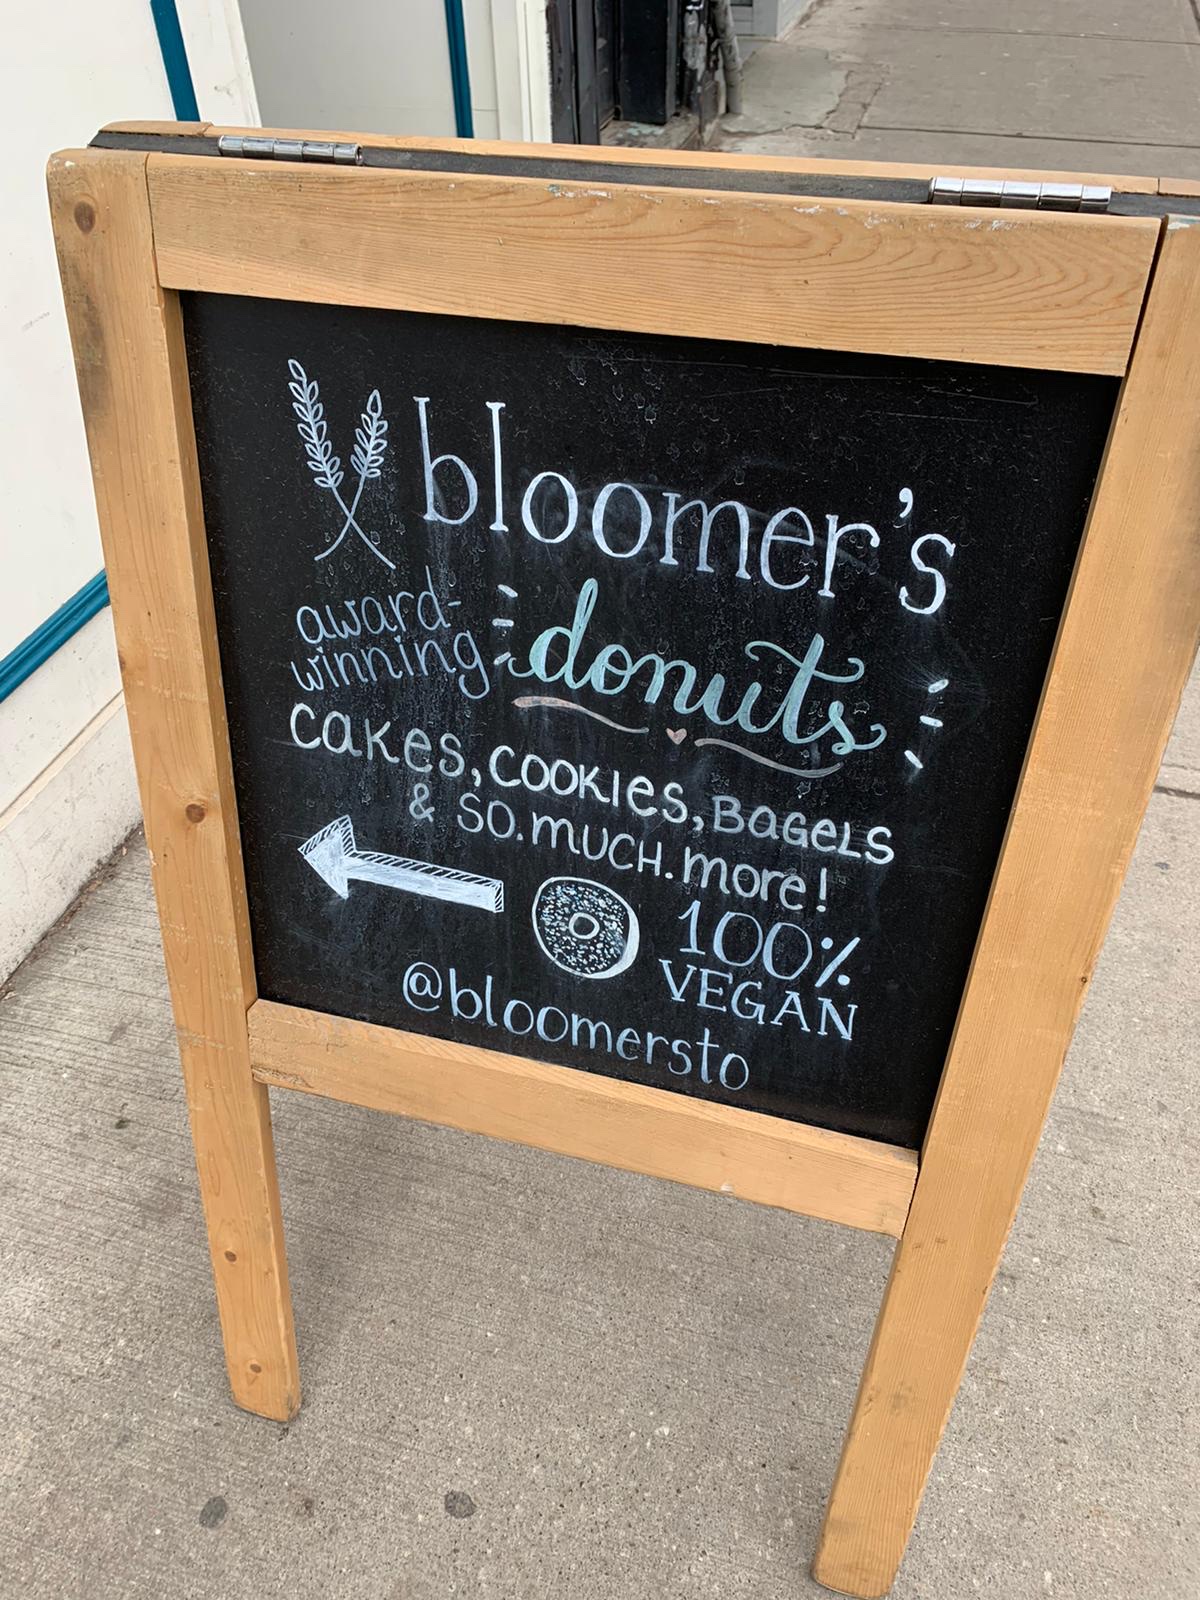 bloomer's
award-
winning donuts
cakes, cookies, Bagels
& so.much.more!
100%
VEGAN
@bloomersto